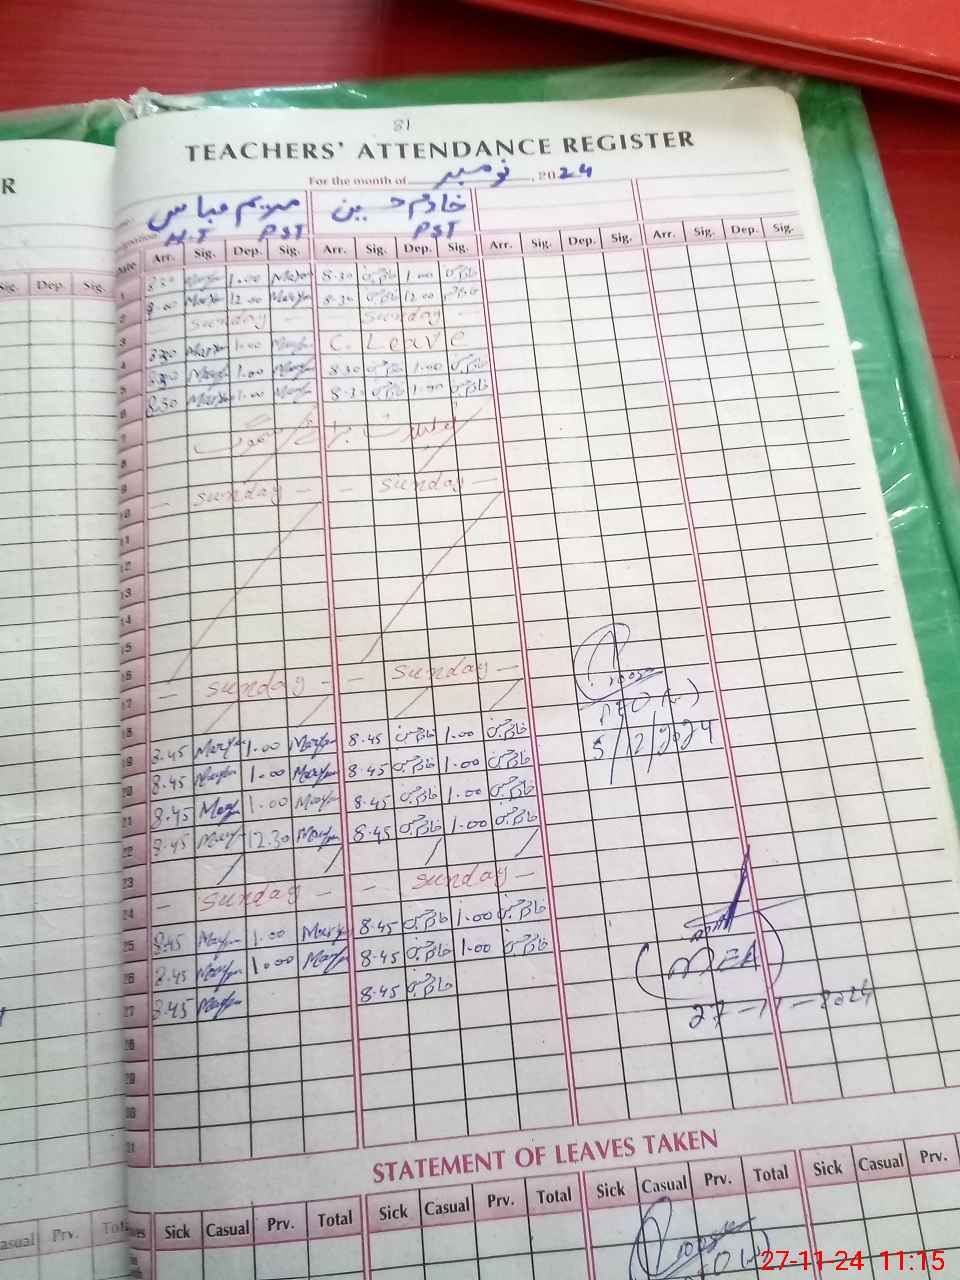 81
R
TEACHERS' ATTENDANCE REGISTER
For the month of نومبر , 2024
مریم عباس خادم حسین
H.T PST PST
Date Arr. Sig. Dep. Sig. Arr. Sig. Dep. Sig. Arr. Sig. Dep. Sig. Arr. Sig. Dep. Sig.
Sig. Dep. Sig.
1 8.30 Maryam 1.00 Maryam 8.30 خادم حسین 1.00 خادم حسین
2 8.00 Maryam 12.00 Maryam 8.30 خادم حسین 12.00 خادم حسین
3 — Sunday — — Sunday —
4 8.30 Maryam 1.00 Maryam C. Leave
5 8.30 Maryam 1.00 Maryam 8.30 خادم حسین 1.00 خادم حسین
6 8.30 Maryam 1.00 Maryam 8.30 خادم حسین 1.00 خادم حسین
7
8
9
10 — Sunday — — Sunday —
11
12
13
14
15
16
17 — Sunday — — Sunday —
18
19 8.45 Maryam 1.00 Maryam 8.45 خادم حسین 1.00 خادم حسین
20 8.45 Maryam 1.00 Maryam 8.45 خادم حسین 1.00 خادم حسین
21 8.45 Maryam 1.00 Maryam 8.45 خادم حسین 1.00 خادم حسین
22 8.45 Maryam 12.30 Maryam 8.45 خادم حسین 1.00 خادم حسین
23
24 — Sunday — — Sunday —
25 8.45 Maryam 1.00 Maryam 8.45 خادم حسین 1.00 خادم حسین
26 8.45 Maryam 1.00 Maryam 8.45 خادم حسین 1.00 خادم حسین
27 8.45 Maryam 8.45 خادم حسین
28
29
30
31
5/12/2024
MEA
27-11-2024
STATEMENT OF LEAVES TAKEN
Sick Casual Prv. Total Sick Casual Prv. Total Sick Casual Prv. Total Sick Casual Prv.
Casual Prv. Total
27-11-24 11:15